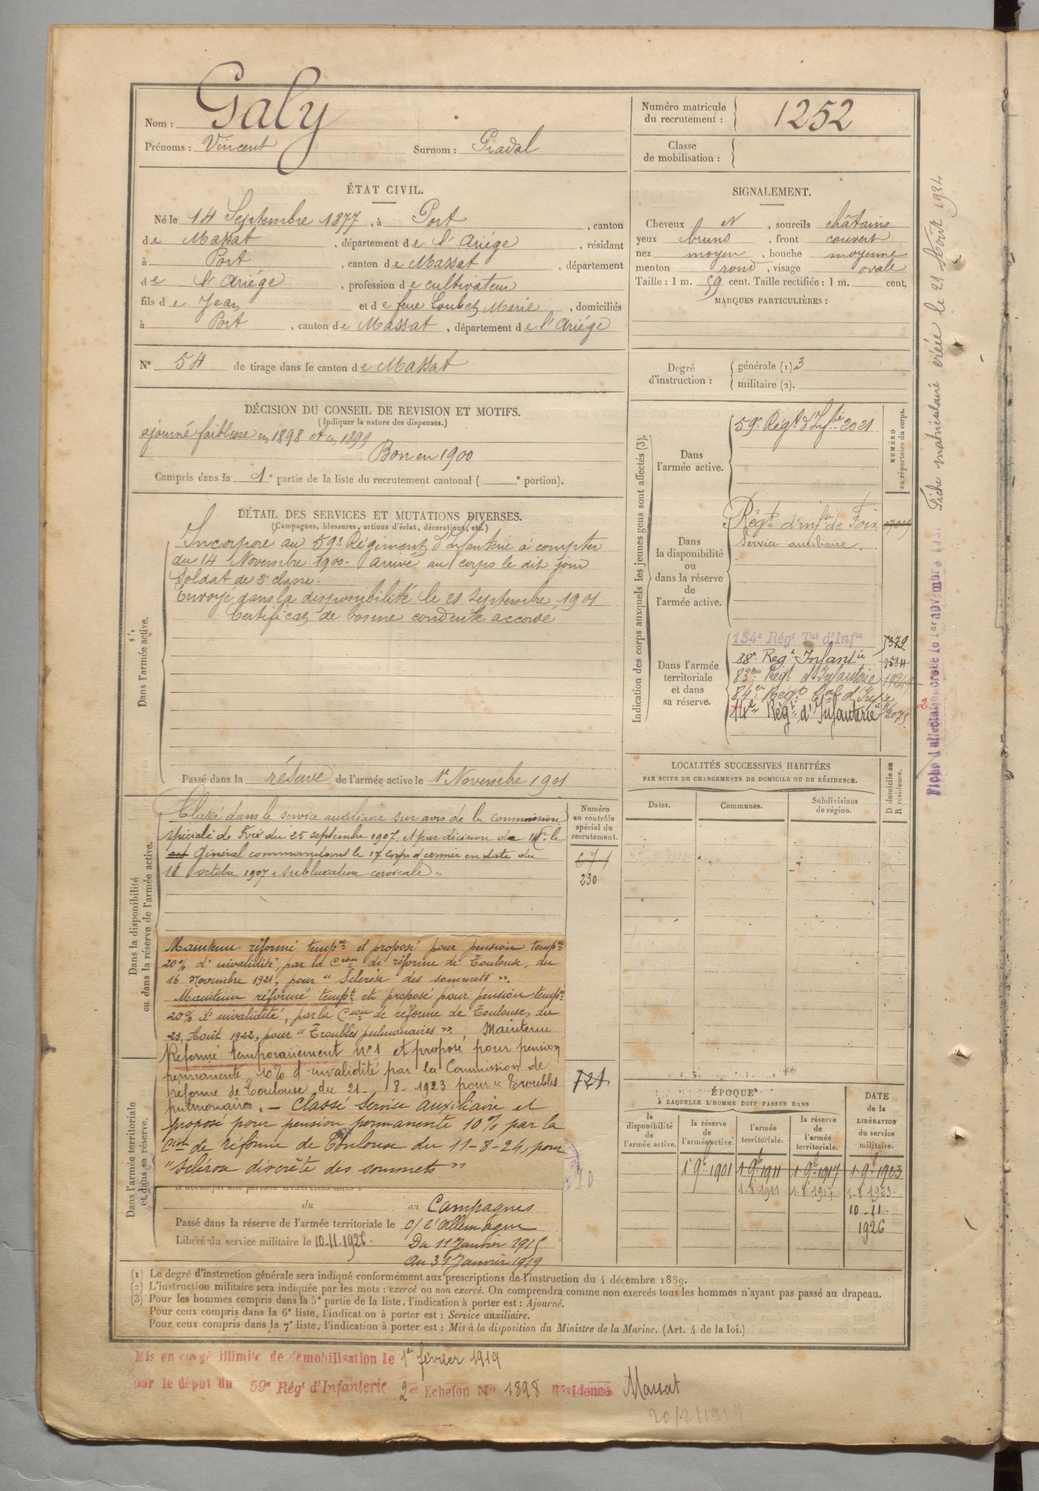 Nom : Galy
Prénoms : Vincent Surnom : Pradal
Numéro matricule du recrutement : 1252
Classe de mobilisation :
ÉTAT CIVIL.
Né le 14 Septembre 1877, à Port, canton
de Massat, département de l'Ariége, résidant
à Port, canton de Massat, département
de l'Ariége, profession de cultivateur
fils de Jean et de feue Loubet Marie, domiciliés
à Port, canton de Massat, département de l'Ariége
N° 54 de tirage dans le canton de Massat
SIGNALEMENT.
Cheveux N, sourcils châtains
yeux bruns, front couvert
nez moyen, bouche moyenne
menton rond, visage ovale
Taille : 1 m. 59 cent. Taille rectifiée : 1 m. cent,
MARQUES PARTICULIÈRES :
Degré d'instruction : générale (1) 3
militaire (2).
DÉCISION DU CONSEIL DE REVISION ET MOTIFS.
(Indiquer la nature des dispenses.)
ajourné faiblesse en 1898 et en 1899
Bon en 1900
Compris dans la 1e partie de la liste du recrutement cantonal ( e portion).
DÉTAIL DES SERVICES ET MUTATIONS DIVERSES.
(Campagnes, blessures, actions d'éclat, décorations, etc.)
Dans l'armée active.
Incorporé au 59e Régiment d'Infanterie à compter
du 14 Novembre 1900. Arrivé au corps le dit jour
Soldat de 2e classe.
Envoyé dans la disponibilité le 21 Septembre 1901
Certificat de bonne conduite accordé
Passé dans la réserve de l'armée active le 1er Novembre 1901
Indication des corps auxquels les jeunes gens sont affectés (3).
NUMÉRO au répertoire du corps.
Dans l'armée active.
59e Régt d'Infie 2021
Dans la disponibilité ou dans la réserve de l'armée active.
Régt d'infie de Foix
Service auxiliaire.
Dans l'armée territoriale et dans sa réserve.
134e Régt Tal d'Infie
88e Regt Infantie
83ème Régt d'Infanterie
14e Régt d'Infanterie
Dans la disponibilité ou dans la réserve de l'armée active.
Classé dans le service auxiliaire sur avis de la commission
spéciale de Foix du 25 septembre 1907. et par décision de Mr le
Général commandant le 17 corps d'armée en date du
18 octobre 1907 « Subluxation cervicale »
Numéro au contrôle spécial du recrutement.
271
230
Maintenu réformé tempre et proposé pour pension tempre
20% d'invalidité, par la Cson de réforme de Toulouse, du
16 Novembre 1921, pour "Sclérose des sommets".
Maintenu réformé tempt et proposé pour pension tempre
20% d'invalidité, par la Cson de réforme de Toulouse, du
23 Août 1922, pour "Troubles pulmonaires". Maintenu
Réformé temporairement n°1 et proposé pour pension
permanente 10% d'invalidité par la Commission de
réforme de Toulouse du 21-8-1923 pour "Troubles
pulmonaires. — Classé Service Auxiliaire et
proposé pour pension permanente 10% par la
Cson de réforme de Toulouse du 11-8-24, pour
"Sclérose discrète des sommets"
721
Dans l'armée territoriale et dans sa réserve.
du au
Passé dans la réserve de l'armée territoriale le
Libéré du service militaire le 10-11-1926
Campagnes
c/ l'Allemagne
Du 11 Janvier 1915
Au 31 Janvier 1919
LOCALITÉS SUCCESSIVES HABITÉES
PAR SUITE DE CHANGEMENTS DE DOMICILE OU DE RÉSIDENCE.
Dates. Communes. Subdivisions de région. D domicile ou R résidence.
ÉPOQUE
À LAQUELLE L'HOMME DOIT PASSER DANS
la disponibilité de l'armée active. la réserve de l'armée active. l'armée territoriale. la réserve de l'armée territoriale.
DATE de la LIBÉRATION du service militaire.
1 9bre 1901 1 9bre 1911 1 9bre 1917 1 9bre 1923
10-11-1926
(1) Le degré d'instruction générale sera indiqué conformément aux prescriptions de l'instruction du 4 décembre 1889.
(2) L'instruction militaire sera indiquée par les mots : exercé ou non exercé. On comprendra comme non exercés tous les hommes n'ayant pas passé au drapeau.
(3) Pour les hommes compris dans la 5e partie de la liste, l'indication à porter est : Ajourné.
Pour ceux compris dans la 6e liste, l'indication à porter est : Service auxiliaire.
Pour ceux compris dans la 7e liste, l'indication à porter est : Mis à la disposition du Ministre de la Marine. (Art. 4 de la loi.)
Mis en congé illimité de démobilisation le 1er février 1919
par le dépôt du 59e Régt d'Infanterie 2e Echelon N° 1898 Résidence Massat
Fiche matriculaire créée le 21 Août 1924